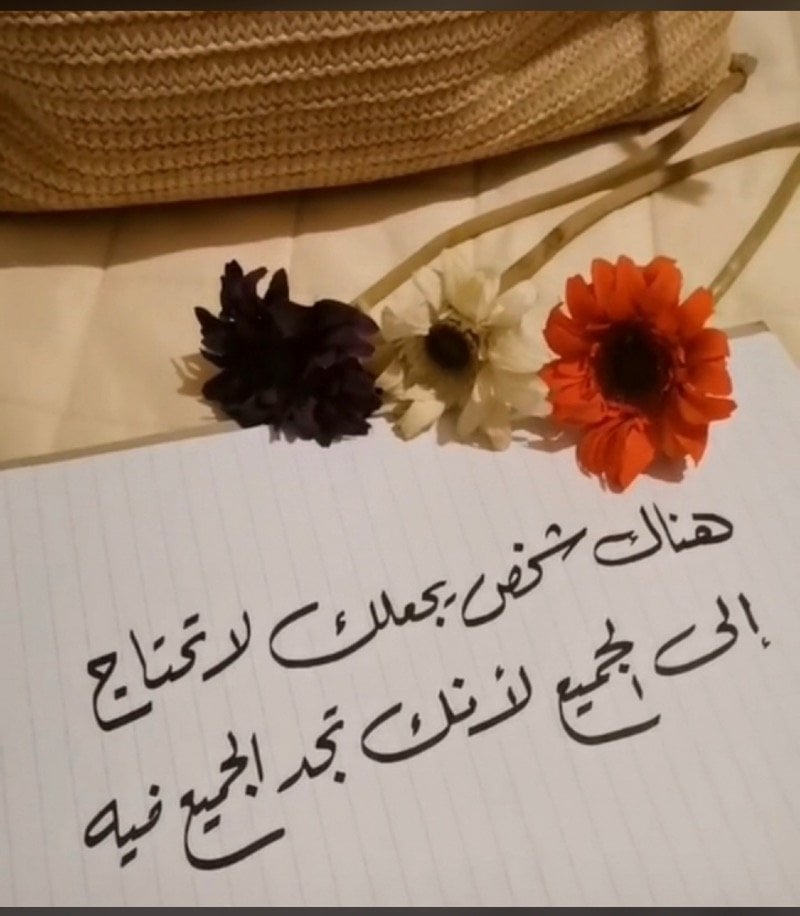 هناك شخص يجعلك لا تحتاج
إلى الجميع لأنك تجد الجميع فيه